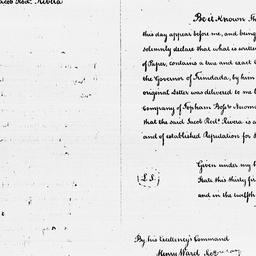 Jacob Rodr. Rivera
Be it Known Th
this day appear before me, and being
solemnly declare that what is written
of Paper, contains a true and exact C
the Governor of Trinidada, by him
original Letter was delivered to me b
Company of Topham
that the said Jacob Rodr. Rivera is a
and of established Reputation for
Given under my h
State this thirty fir
and in the twelfth
L.S.
By his Excellency's Command
Henry Ward Secretary